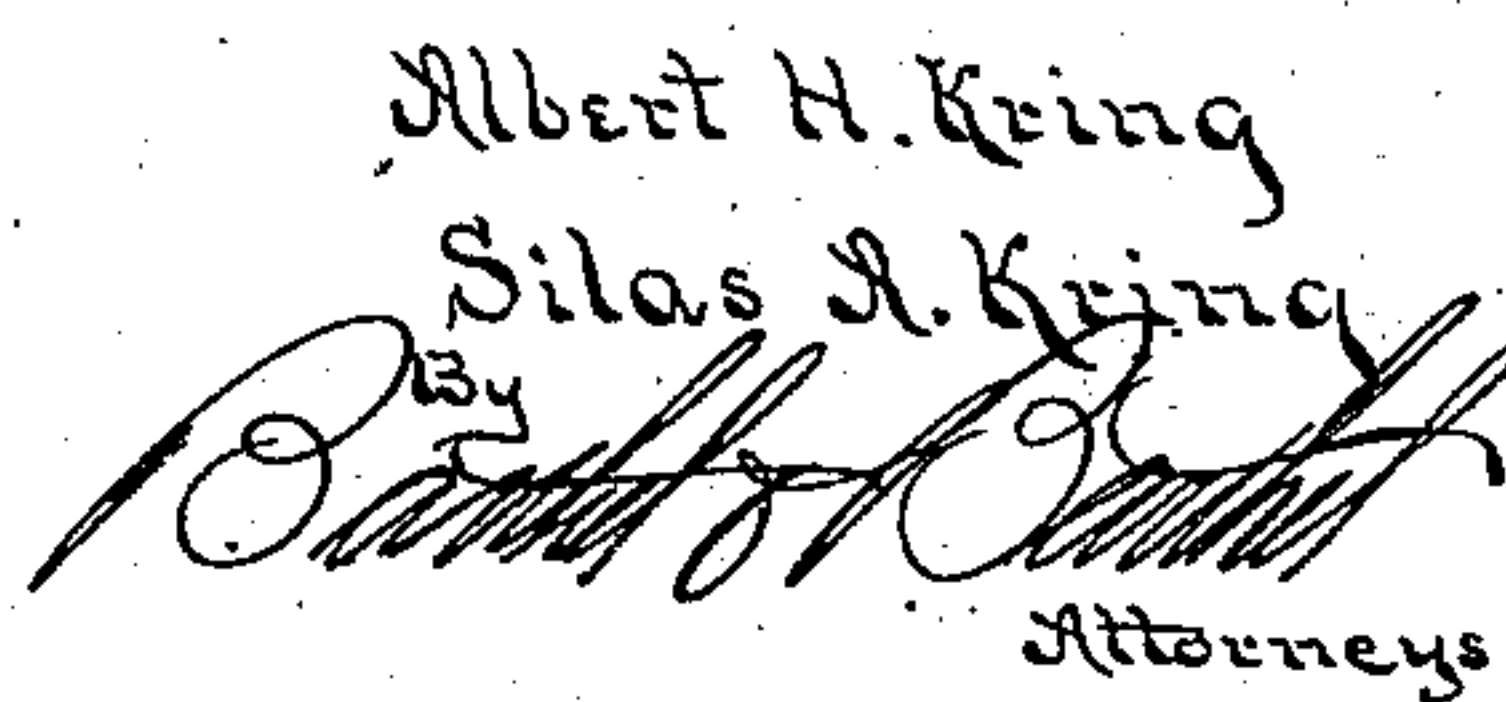 Albert H. Kring
Silas A. Kring
By
Attorneys